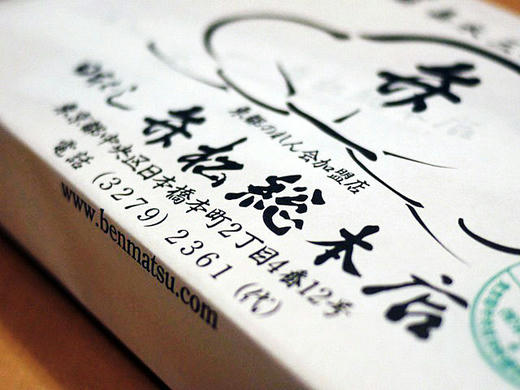 弁
東都のれん会加盟店
日本ばし
弁松総本店
東京都中央区日本橋本町2丁目4番12号
電話 (3279) 2361 (代)
www.benmatsu.com